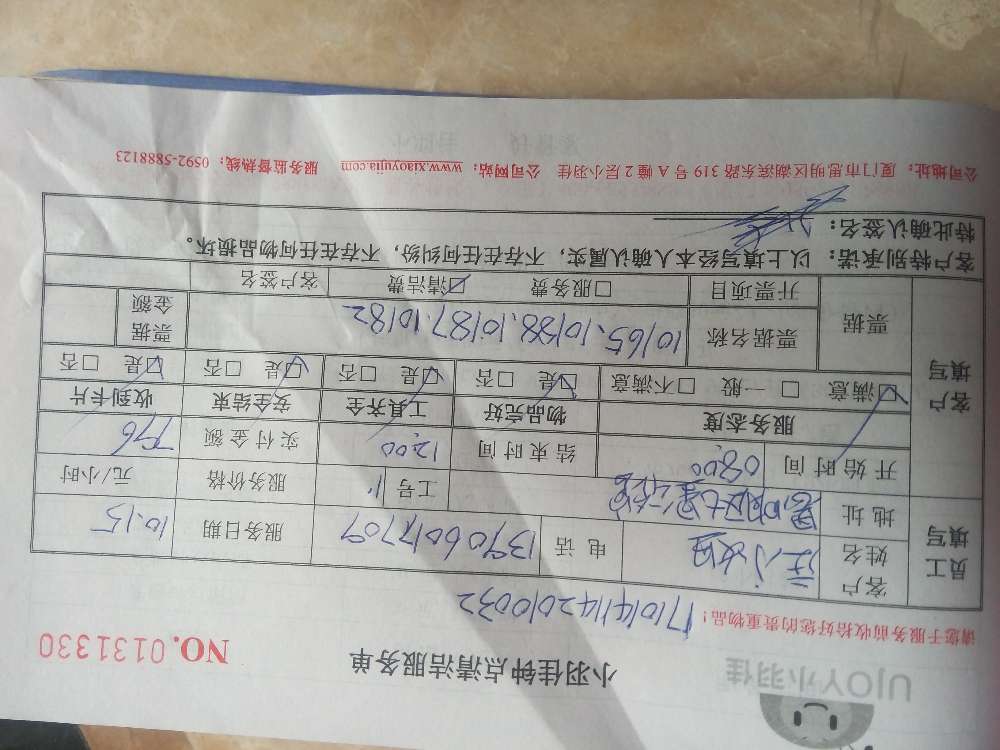 UJOY小羽佳
小羽佳钟点清洁服务单
NO. 0131330
请您于服务前收拾好您的贵重物品！
171041142010032
员工填写
客户姓名
电话 13906017709
服务日期 10.15
地址
工号 11
服务价格 元/小时
开始时间 08:00
结束时间 12:00
实付金额 776
客户填写
服务态度 物品完好 工具齐全 安全结束 收到卡片
☑满意 □一般 □不满意 ☑是 □否 ☑是 □否 ☑是 □否 ☑是 □否
票据 票据名称 10165、10188、10187、10182 票据金额
开票项目 □服务费 ☑清洁费 客户签名
客户特别承诺：以上填写经本人确认属实，不存在任何纠纷，不存在任何物品损坏。
特此确认签名：
公司地址：厦门市思明区湖滨东路 319 号 A 幢 2 层小羽佳 公司网站：www.xiaoyujia.com 服务监督热线：0592-5888123